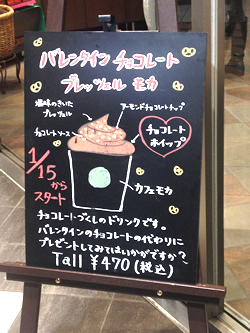 バレンタイン チョコレート
プレッツェル モカ
塩味のきいた
プレッツェル
アーモンドチョコレートチップ
チョコレートソース
チョコレート
ホイップ
1/15から
スタート
カフェモカ
チョコレートづくしのドリンクです。
バレンタインのチョコレートの代わりに
プレゼントしてみてはいかがですか?
Tall ¥470(税込)